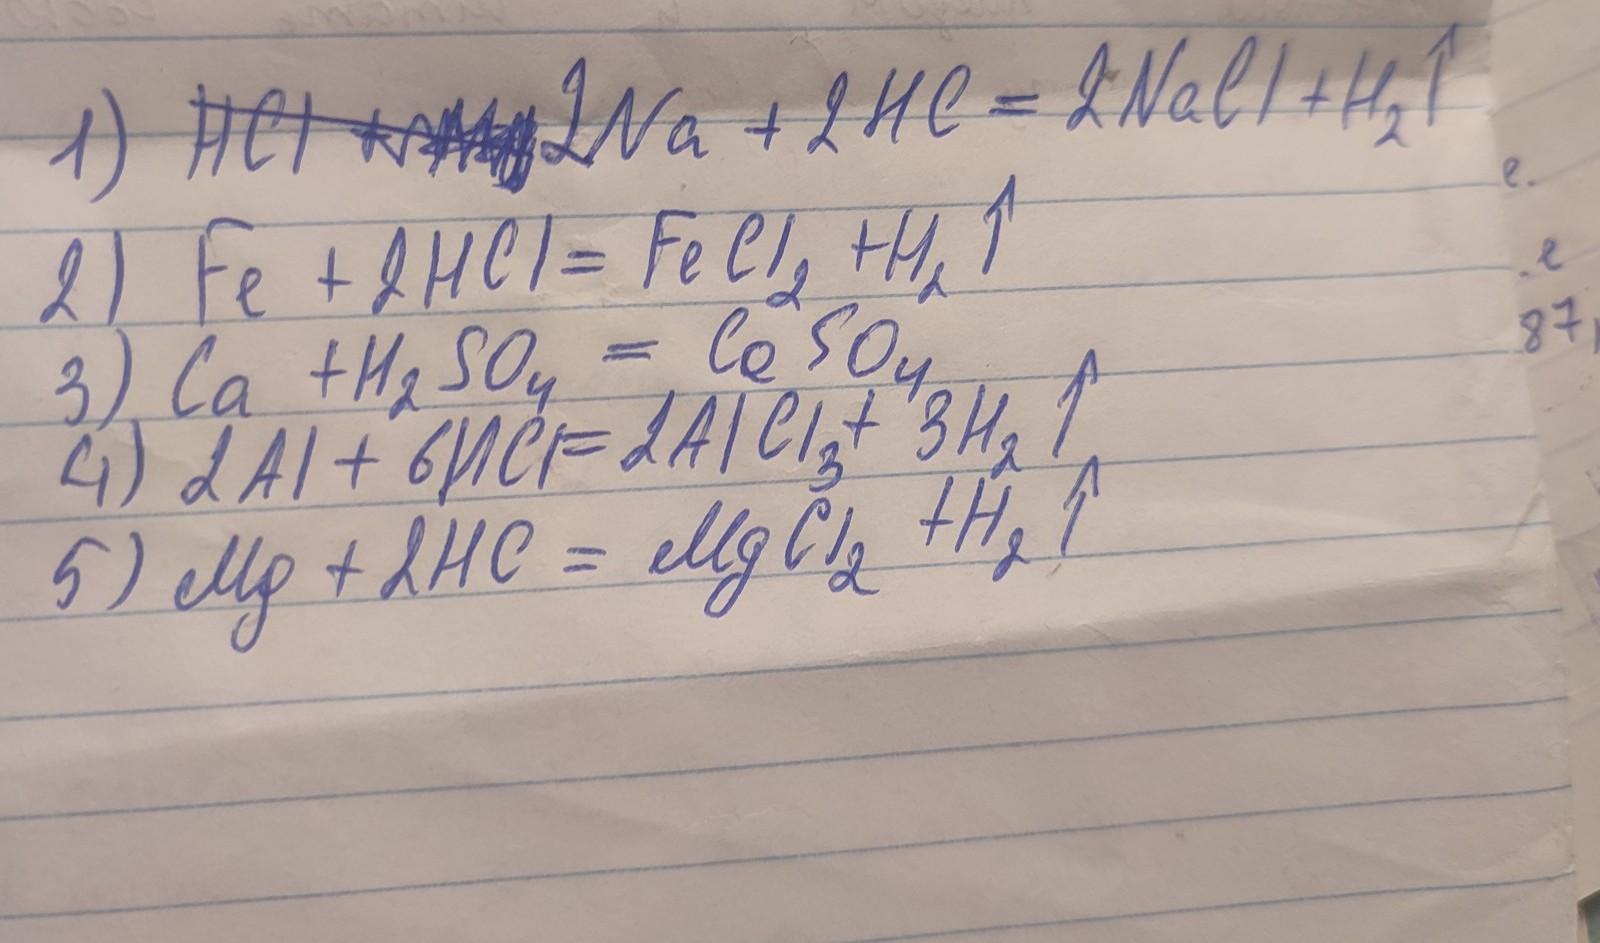 1) 2Na + 2HC = 2NaCl + H₂↑
2) Fe + 2HCl = FeCl₂ + H₂↑
3) Ca + H₂SO₄ = CaSO₄
4) 2Al + 6HCl = 2AlCl₃ + 3H₂↑
5) Mg + 2HC = MgCl₂ + H₂↑
е.
.е
87,